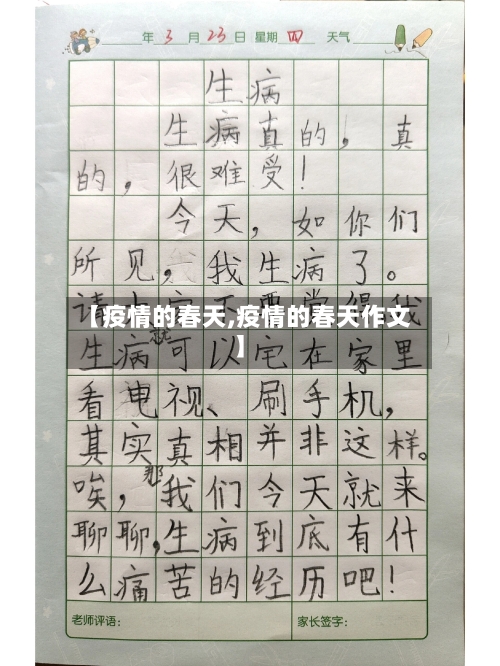 年 3 月 23 日 星期 四 天气
生病
生病真的，真
的，很难受！
今天，如你们
所见，我生病了。
【疫情的春天,疫情的春天作文
】
就
生病可以宅在家里
看电视、刷手机，
其实真相并非这样。
那
唉，我们今天就来
聊聊，生病到底有什
么痛苦的经历吧！
老师评语： 家长签字：